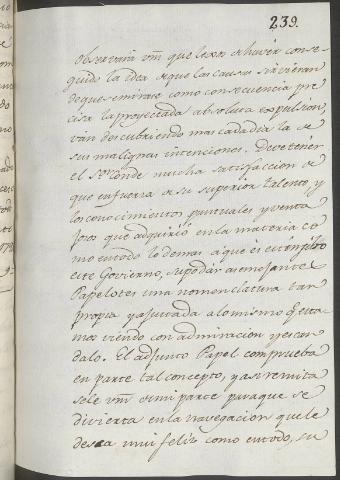 239.
observará vm que lexos de haver conse-
guido la idea de que las causas sirvieran
de que se mirase como consecuencia pre-
cisa la proyectada absoluta expulsion,
van descubriendo mas cada dia la de
sus malignas intenciones. Deve tener
el Sr. Conde mucha satisfaccion de
que en fuerza de su superior talento, y
los conocimientos puntuales y venta
josos que adquirió en la materia co
mo en todo lo demas a que se extendio
este Govierno, supo dar a semejantes
Papelotes una nomenclatura tan
propia y ajustada a lo mismo q.e esta
mos viendo con admiracion y escan
dalo. El adjunto Papel comprueba
en parte tal concepto, y asi remita
sele vm de mi parte para que se
divierta en la navegacion que le
desea mui feliz como en todo, su